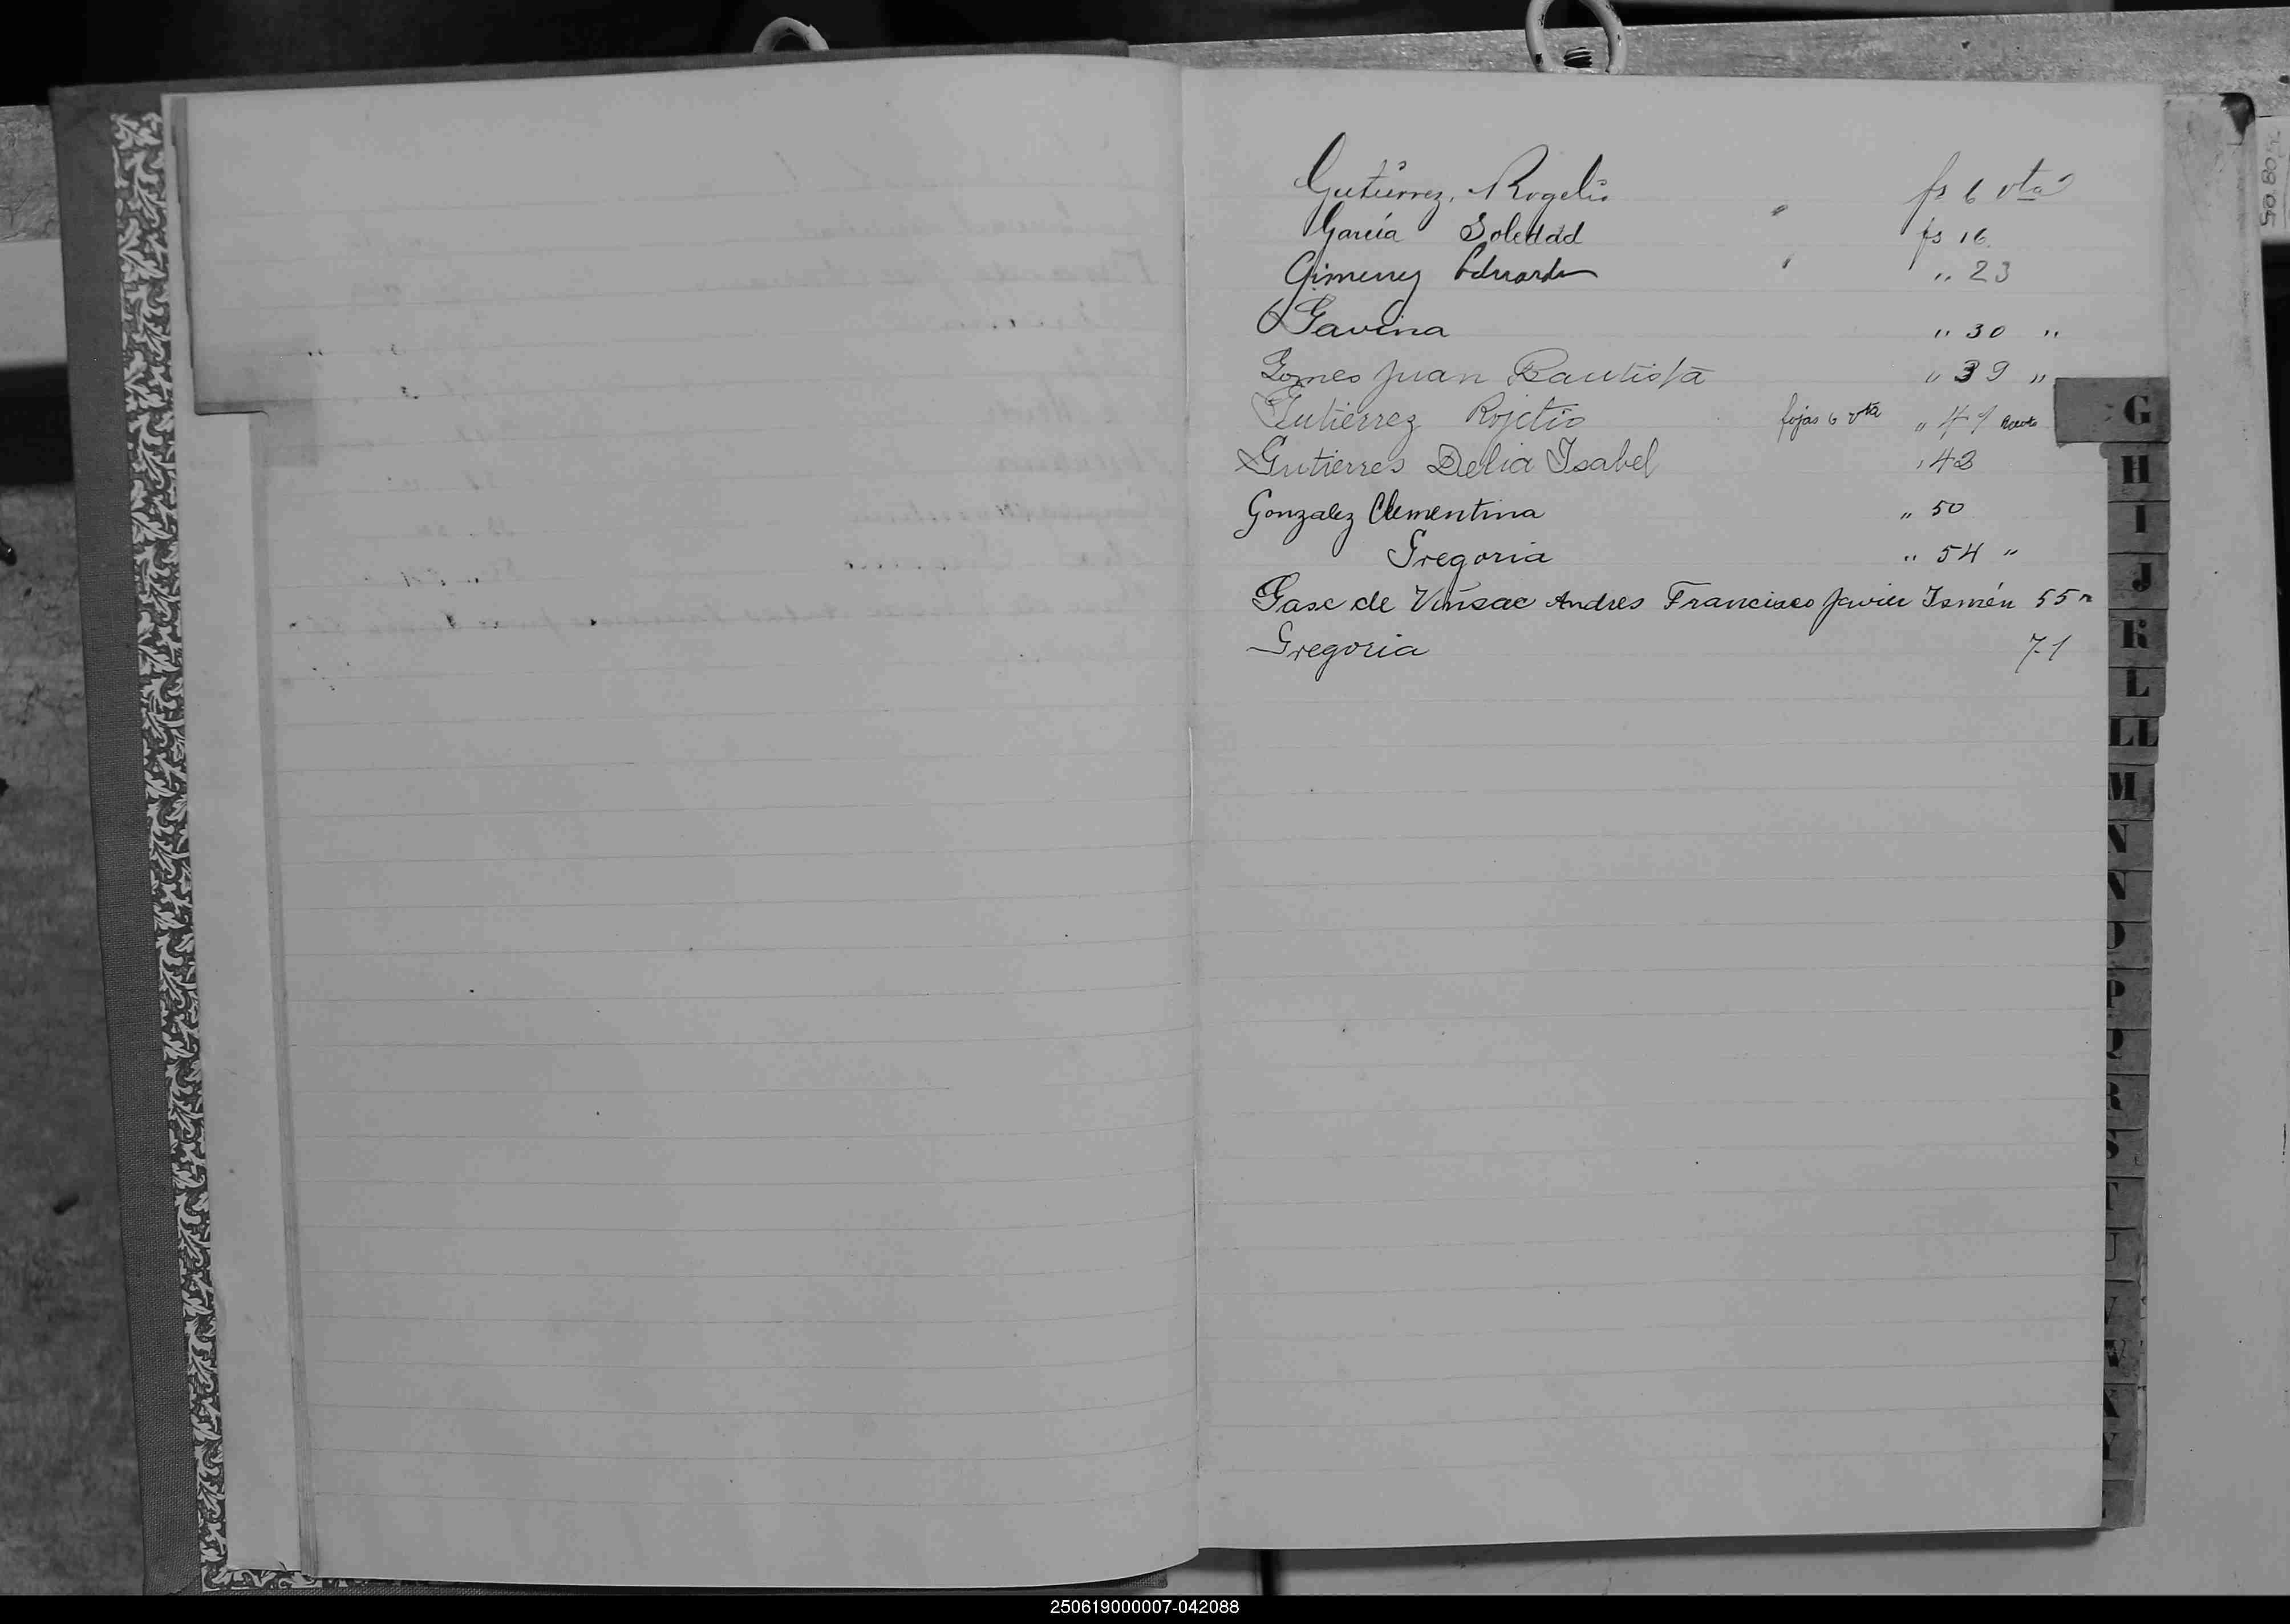 Gutierrez, Rogelio fs 6 vta
García Soledad fs 16
Gimenez Eduardo " 23
Gavina " 30 "
Gomes Juan Bautista " 39 "
Gutierrez Rojelio fojas 6 vta " 41
Gutierres Delia Isabel " 42
Gonzalez Clementina " 50
Gregoria " 54 "
Gasc de Vinsac Andres Francisco Javier Ismén 55 "
Gregoria 71
G
H
I
J
K
L
LL
M
N
N
O
P
Q
R
S
T
U
V
W
X
Y
250619000007-042088